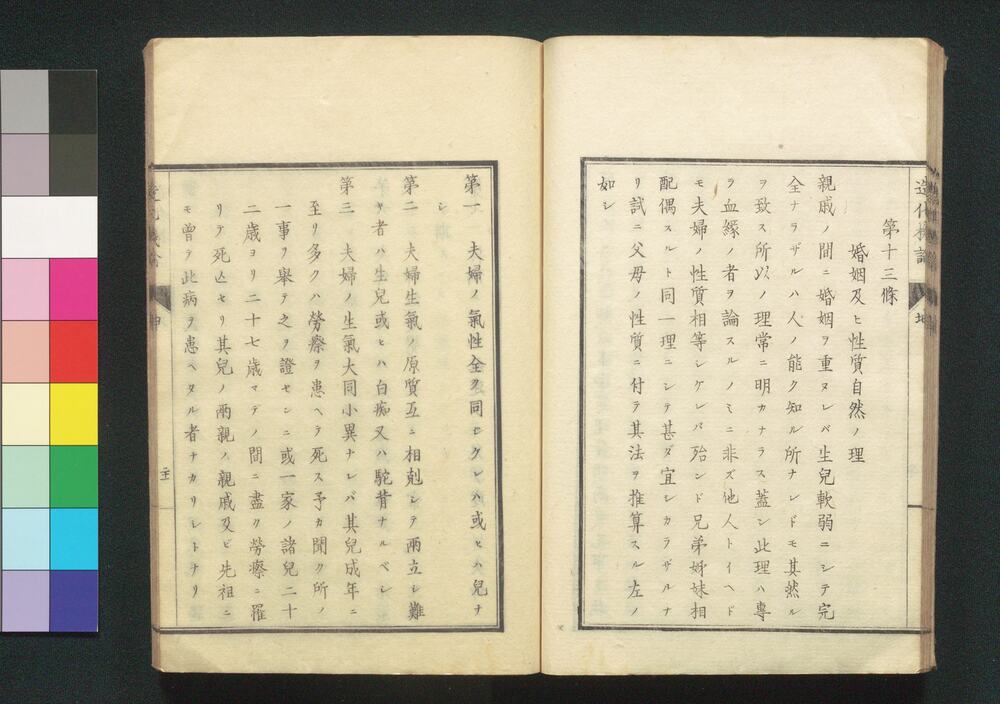 造化機論 坤
第十三條
婚姻及ヒ性質自然ノ理
親戚ノ間ニ婚姻ヲ重ヌレバ生兒軟弱ニシテ完
全ナラザルハ人ノ能ク知ル所ナレドモ其然ル
ヲ致ス所以ノ理常ニ明カナラス蓋シ此理ハ專
ラ血縁ノ者ヲ論スルノミニ非ズ他人トイヘド
モ夫婦ノ性質相等シケレバ殆ンド兄弟姊妹相
配偶スルト同一理ニシテ甚ダ宜シカラザルナ
リ試ニ父母ノ性質ニ付テ其法ヲ推算スル左ノ
如シ
第一 夫婦ノ氣性全ク同セケレハ或ヒハ兒ナ
シ
第二 夫婦生氣ノ原質互ニ相剋シテ兩立シ難
キ者ハ生兒或ヒハ白痴又ハ駝背ナルベシ
第三 夫婦ノ生氣大同小異ナレバ其兒成年ニ
至リ多クハ勞瘵ヲ患ヘテ死ス予カ聞ク所ノ
一事ヲ舉テ之ヲ證センニ或一家ノ諸兒二十
二歳ヨリ二十七歳マデノ間ニ盡ク勞瘵ニ罹
リテ死亡セリ其兒ノ兩親ノ親戚及ビ先祖ニ
モ曾テ此病ヲ患ヘタル者ナカリシトナリ
造化機論 坤